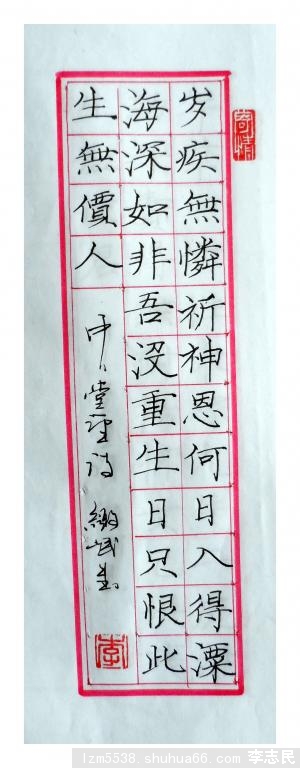 岁疾無憐祈神恩何日入得溧
海深如非吾沒重生日只恨此
生無價人
李
lzm5538.shuhua66.com 李志民